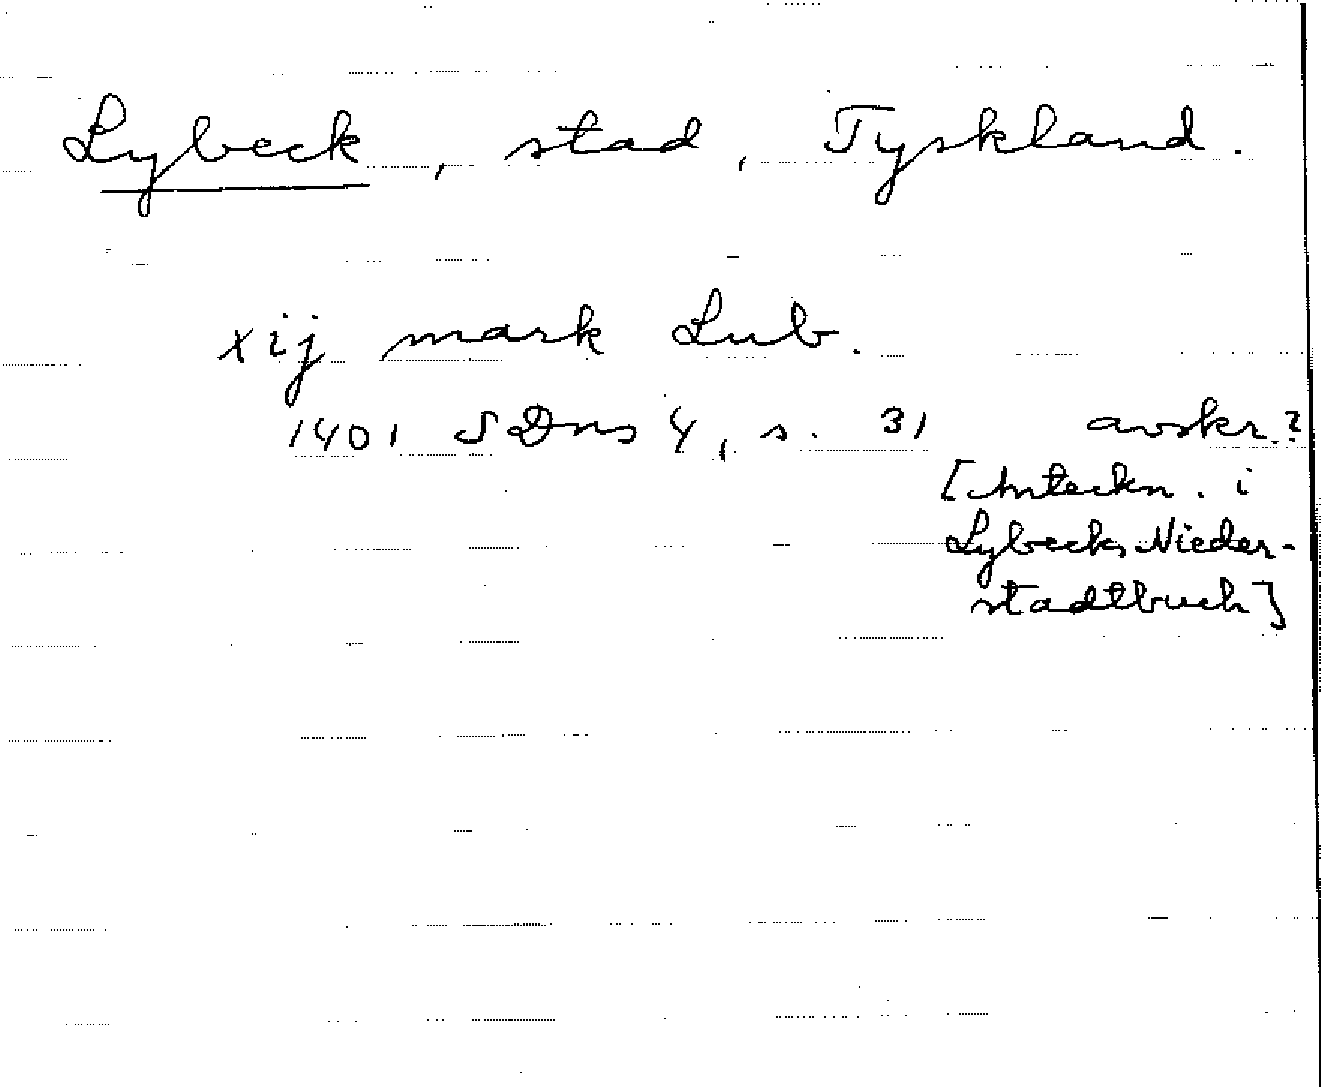 Lybeck, stad, Tyskland.
xij mark Lub.
1401 SDns 4, s. 31 avskr.?
[Anteckn. i
Lybecks Nieder-
stadtbuch]